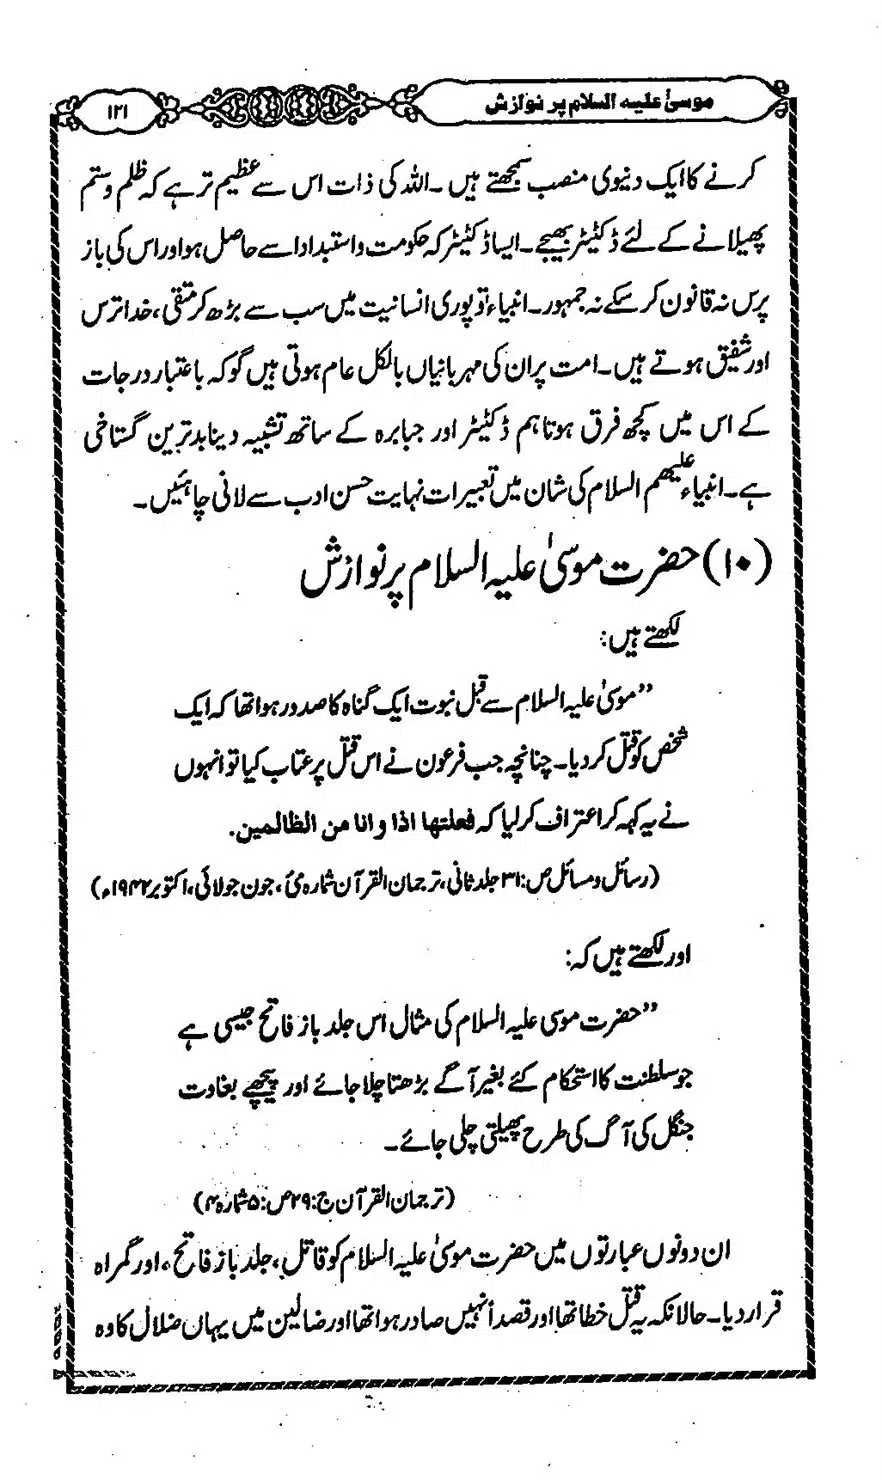 موسیٰ علیہ السلام پر نوازش
۱۲۱
کرنے کا ایک دنیوی منصب سمجھتے ہیں۔ اللہ کی ذات اس سے عظیم تر ہے کہ ظلم و ستم
پھیلانے کے لئے ڈکٹیٹر بھیجے۔ ایسا ڈکٹیٹر کہ حکومت و استبداد اسے حاصل ہو اور اس کی باز
پرس نہ قانون کر سکے نہ جمہور۔ انبیاء تو پوری انسانیت میں سب سے بڑھ کر متقی، خدا ترس
اور شفیق ہوتے ہیں۔ امت پر ان کی مہربانیاں بالکل عام ہوتی ہیں گو کہ باعتبار درجات
کے اس میں کچھ فرق ہو تاہم ڈکٹیٹر اور جبابرہ کے ساتھ تشبیہ دینا بدترین گستاخی
ہے۔ انبیاء علیہم السلام کی شان میں تعبیرات نہایت حسن ادب سے لانی چاہئیں۔
(۱۰) حضرت موسیٰ علیہ السلام پر نوازش
لکھتے ہیں:
”موسیٰ علیہ السلام سے قبل نبوت ایک گناہ کا صدور ہوا تھا کہ ایک
شخص کو قتل کر دیا۔ چنانچہ جب فرعون نے اس قتل پر عتاب کیا تو انہوں
نے یہ کہہ کر اعتراف کر لیا کہ فعلتها اذا و انا من الظالمین.
(رسائل و مسائل ص:۳۱ جلد ثانی، ترجمان القرآن شمارہ مئی، جون جولائی، اکتوبر ۱۹۴۲ء)
اور لکھتے ہیں کہ:
”حضرت موسی علیہ السلام کی مثال اس جلد باز فاتح جیسی ہے
جو سلطنت کا استحکام کئے بغیر آگے بڑھتا چلا جائے اور پیچھے بغاوت
جنگل کی آگ کی طرح پھیلتی چلی جائے۔
(ترجمان القرآن ج:۲۹ ص:۵ شمارہ ۴)
ان دونوں عبارتوں میں حضرت موسیٰ علیہ السلام کو قاتل، جلد باز فاتح، اور گمراہ
قرار دیا۔ حالانکہ یہ قتل خطا تھا اور قصداً نہیں صادر ہوا تھا اور ضالین میں یہاں ضلال کا وہ